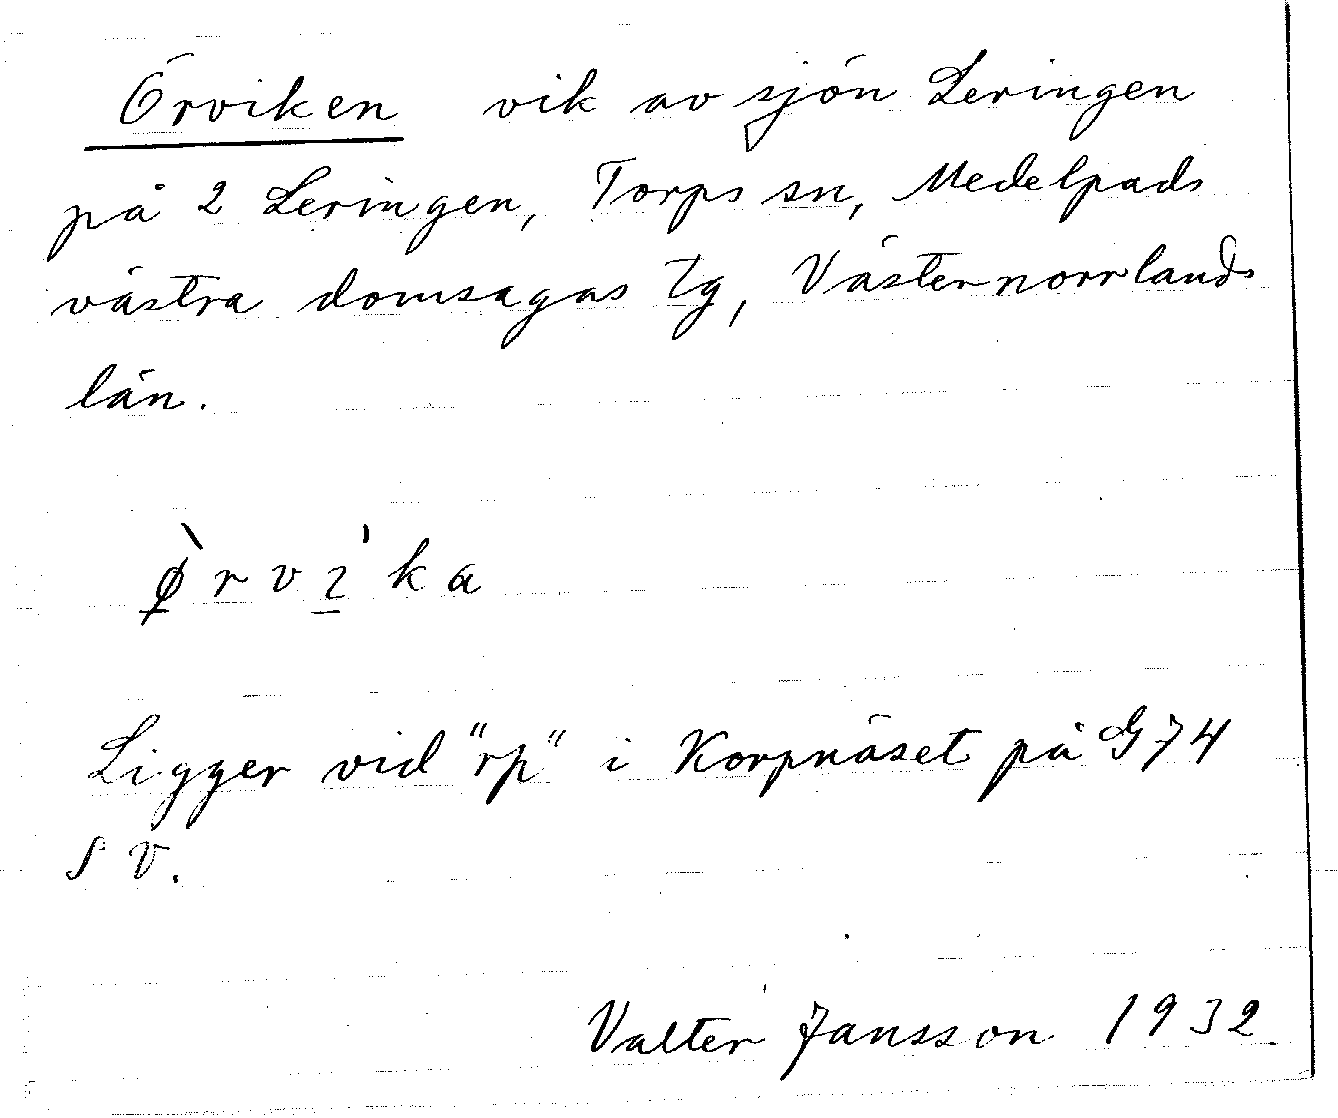 Örviken vik av sjön Leringen
på 2 Leringen, Torps sn, Medelpads
västra domsagas tg, Västernorrlands
län.
ø̱̀rvı̱̍ka
Ligger vid "rp" i Korpnäset på G74
SV.
Valter Jansson 1932